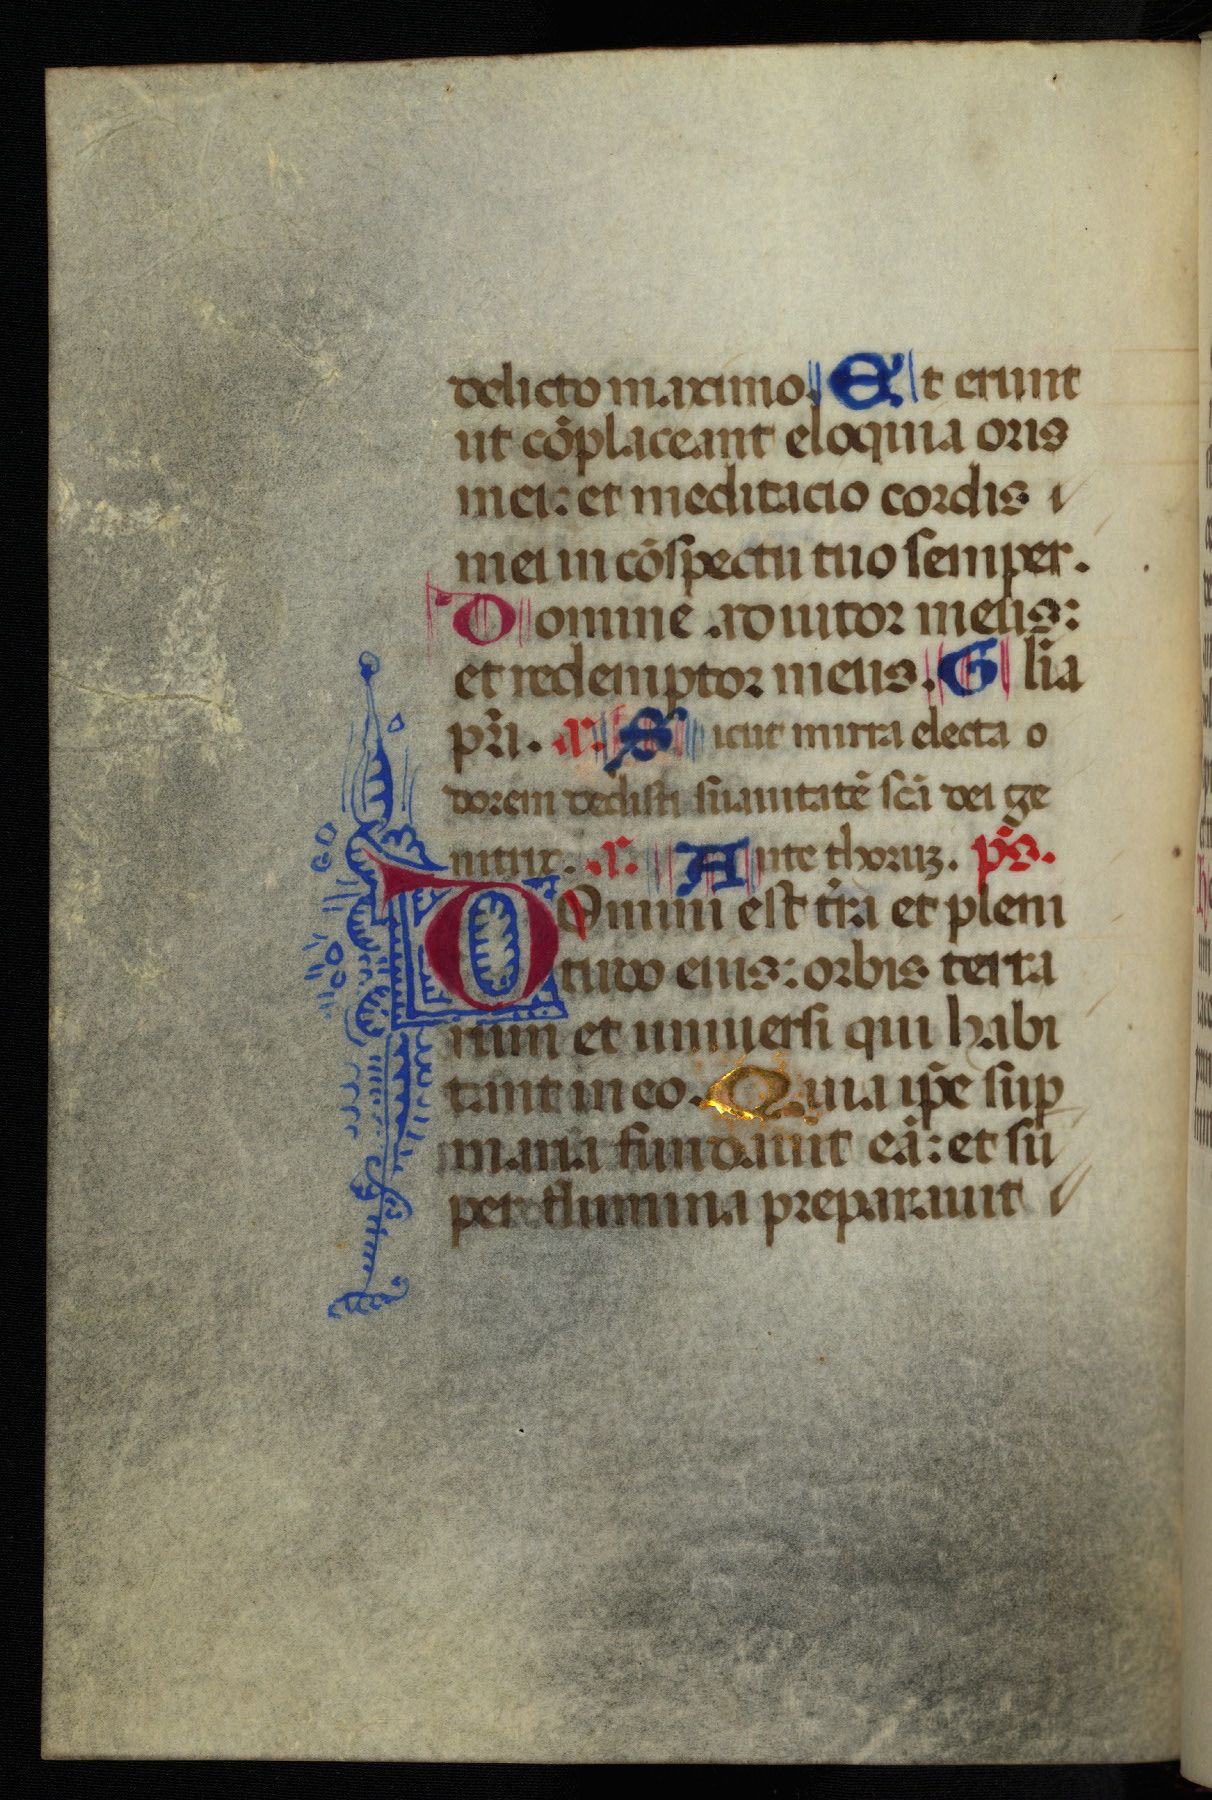 delicto maximo. Et erunt
ut cōplaceant eloquia oris
mei: et meditacio cordis
mei in cōspectu tuo semper.
Domine adiutor meus:
et redemptor meus. Glia
pri. a. Sicut mirra electa o
dorem dedisti suauitatē scā dei ge
nitrix. a. Ante thoruz. ps.
Domini est tr̄a et pleni
tudo eius: orbis terra
rum et uniuersi qui habi
tant in eo. Quia ip̄e sup
maria fundauit eā: et su
per flumina preparauit